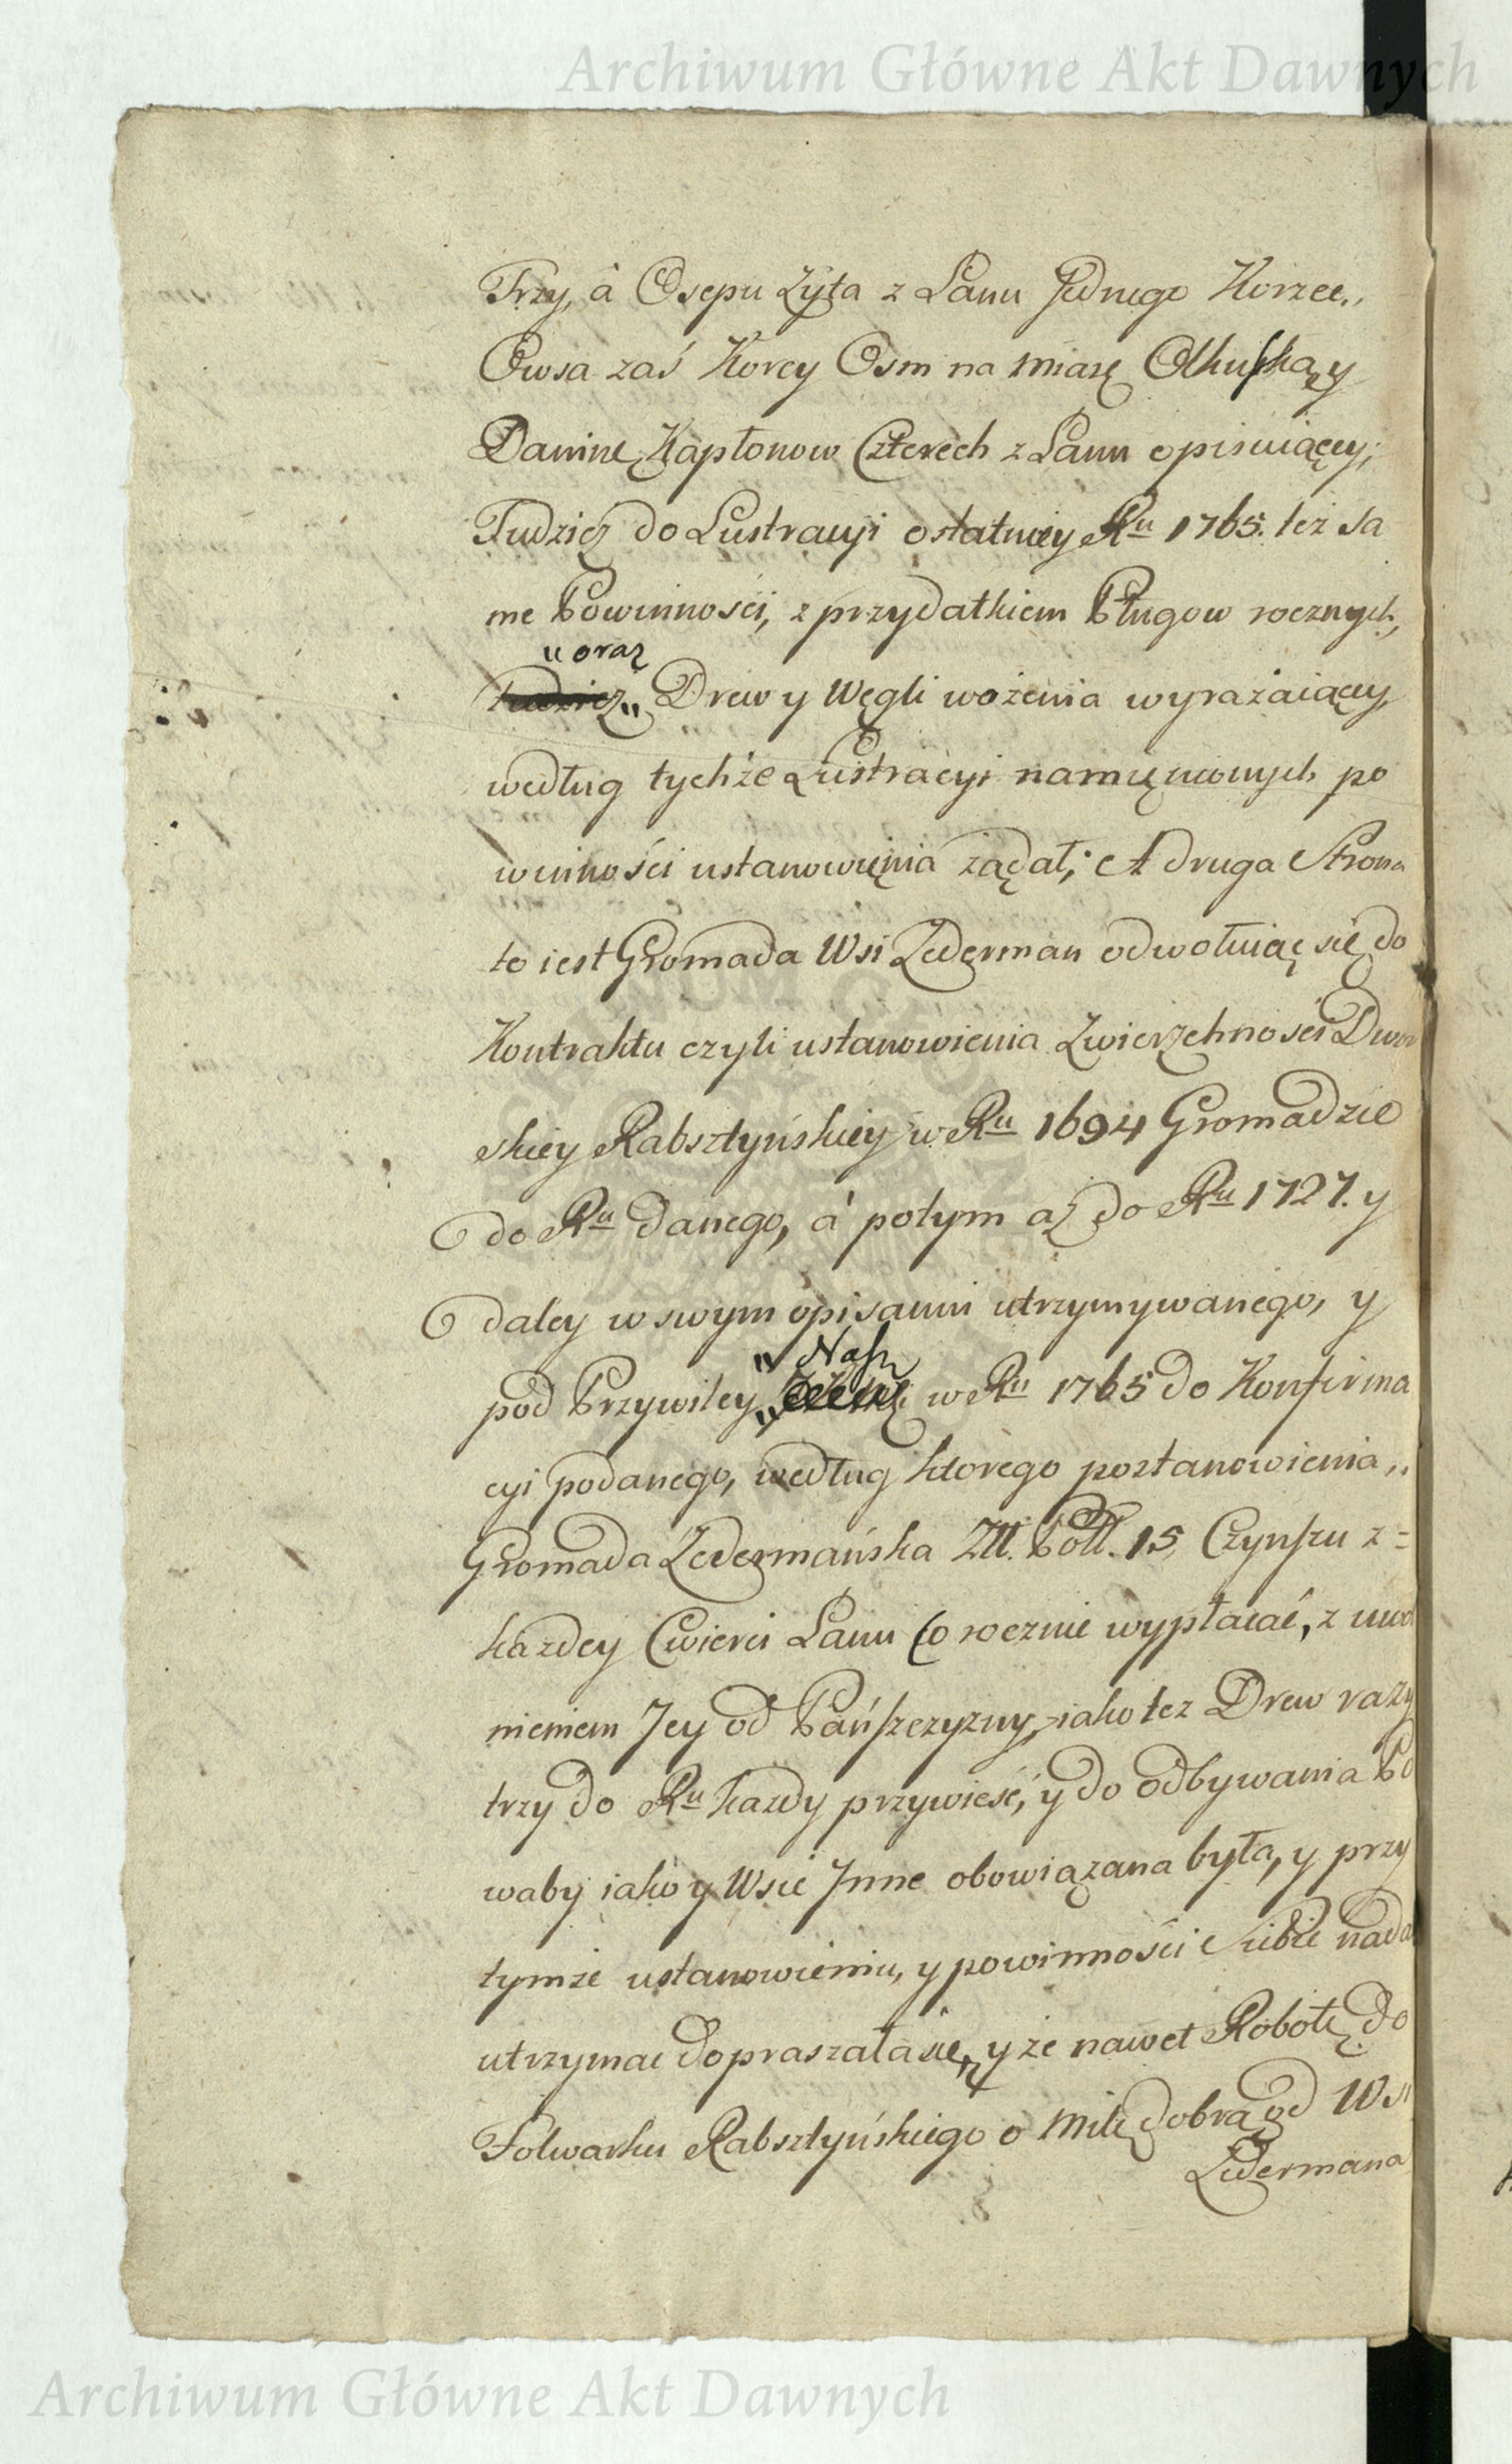 Archiwum Główne Akt Dawnych
Trzy, á Osepu Zÿta z Łanu Jednego Korzec,,
Owsa zaś Korcy Osm na Miarę Olkuską, y
Daninę Kapłonow Czterech z Łanu opisuiącey;
Tudziez do Lustracyi ostatniey Ru 1765. też sa
me Powinności, z przydatkiem Pługow rocznych,
„ oraz
Tudziez „ Drew y Węgli wożenia wyrażaiącey,
według tychże Lustracyi namięnionych po
winności ustanowięnia żądał; A druga Strona
to iest Gromada Wsi Zederman odwołuiąc się do
Kontraktu czyli ustanowienia Zwierzchności Dwor
skiey Rabsztyńskiey w Ru 1694 Gromadzie
do Ru danego, á potym aż do Ru 1727. y
daley w swym opisaniu utrzymywanego, y
„ Nasz
pod Przywiley „ w Ru 1765 do Konfirma
cyi podanego, według ktorego postanowienia,,
Gromada Zedermańska Zlt. Poll. 15, Czynszu z =
każdey Cwierci Łanu Co rocznie wypłacać, z uwol
nieniem Jey od Pańszczyzny, iako tez Drew razy
trzy do Ru każdy przywieść, y do odbywania Po
waby iako y Wsie Jnne obowiązana była, y przy
tymże ustanowieniu, y powinności Siebie nada
utrzymać dopraszała się, y że nawet Robotę do
Folwarku Rabsztyńskiego o Milę dobrą od Wsi
Zedermana
Archiwum Główne Akt Dawnych